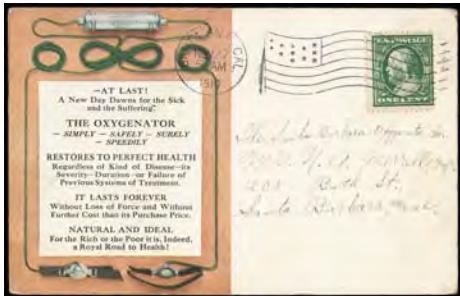 —AT LAST!
A New Day Dawns for the Sick
and the Suffering.
THE OXYGENATOR
— SIMPLY — SAFELY — SURELY
— SPEEDILY
RESTORES TO PERFECT HEALTH
Regardless of Kind of Disease—its
Severity—Duration—or Failure of
Previous Systems of Treatment.
IT LASTS FOREVER
Without Loss of Force and Without
Further Cost than its Purchase Price.
NATURAL AND IDEAL
For the Rich or the Poor it is, Indeed,
a Royal Road to Health!
CAL
AM
U.S. POSTAGE
ONE CENT
The Santa Barbara
St.
Santa Barbara,